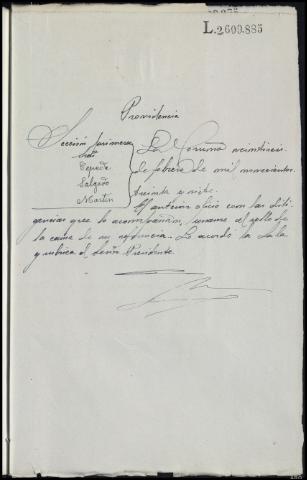 L.2600.885
Providencia
Sección primera
Sres.
Cepeda
Salgado
Martín
La Coruña veintiseis
de febrero de mil novecientos
treinta y siete.
El anterior oficio con las dili-
gencias que le acompañan, unanse al rollo de
la causa de su referencia. Lo acordó la Sala
y rubrica el Señor Presidente.